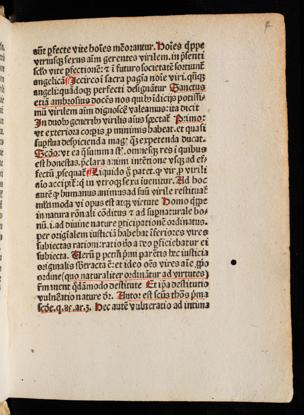 aūt ꝑfecte vite hoīes mēorantur. Hoīes q̄ppe
vtriusqꝫ sexus aīm gerentes virilem, in pn̄ti
sclo vite ꝑfectionē: ⁊ ī futuro societatē sortiunt
angelicā Iccirco ī sacra pagīa noīe viri, q̄ñqꝫ
angeli: quādoqꝫ perfecti designātur Sanctus
etiā ambrosius docēs nos
mū virilem aīm dignoscē valeamus: ita dicit.
In duob᷒ generib᷒ virilis aīus spectat᷑ Primo:
vt exteriora corꝑis, ꝓ minimis habeat. et quasi
supflua despicienda mag̓ q̄ꝫ expetenda ducat.
Scd̓o: vt ea ī quib᷒ summa ē, omnesqꝫ res ī quibus
est honestas, p̄clara animi intēnone vsqꝫ ad ef-
fectū ꝓsequat᷑ Liquido g̓ patet. ꝙ vir, ꝓ virili
aīo accipit᷑: qui in vtroqꝫ sexu iuenitur. Ad hoc
autē ꝙ humanus animus ad suū virile restituat᷑
opus est atqꝫ virtute Homo q̄ppe
in natura rōnali cōditus ⁊ ad supnaturale bo-
nū. i. ad diuine nature ꝑticipationē ordinatus.
per origīalem iusticiā habebat īferiores vires
subiectas rationi: ratio v̓o a deo ꝑficiebatur ei
subiecta. Uerū p̄ pctm̄ pmi parētis hec iusticia
origīnalis sbtracta ē: et ideo oēs vires aīe, ꝓp̓o
ordine (quo naturaliter ordināt᷑ ad virtutes)
rm̄anent q̄dāmodo destitute Et ip̄a destitutio
vulnēatio nature d̓r. Autor est scūs thōs p̄ma
scd̓e. q. 85. ar. 3. Hec autē vulneratio ad intima